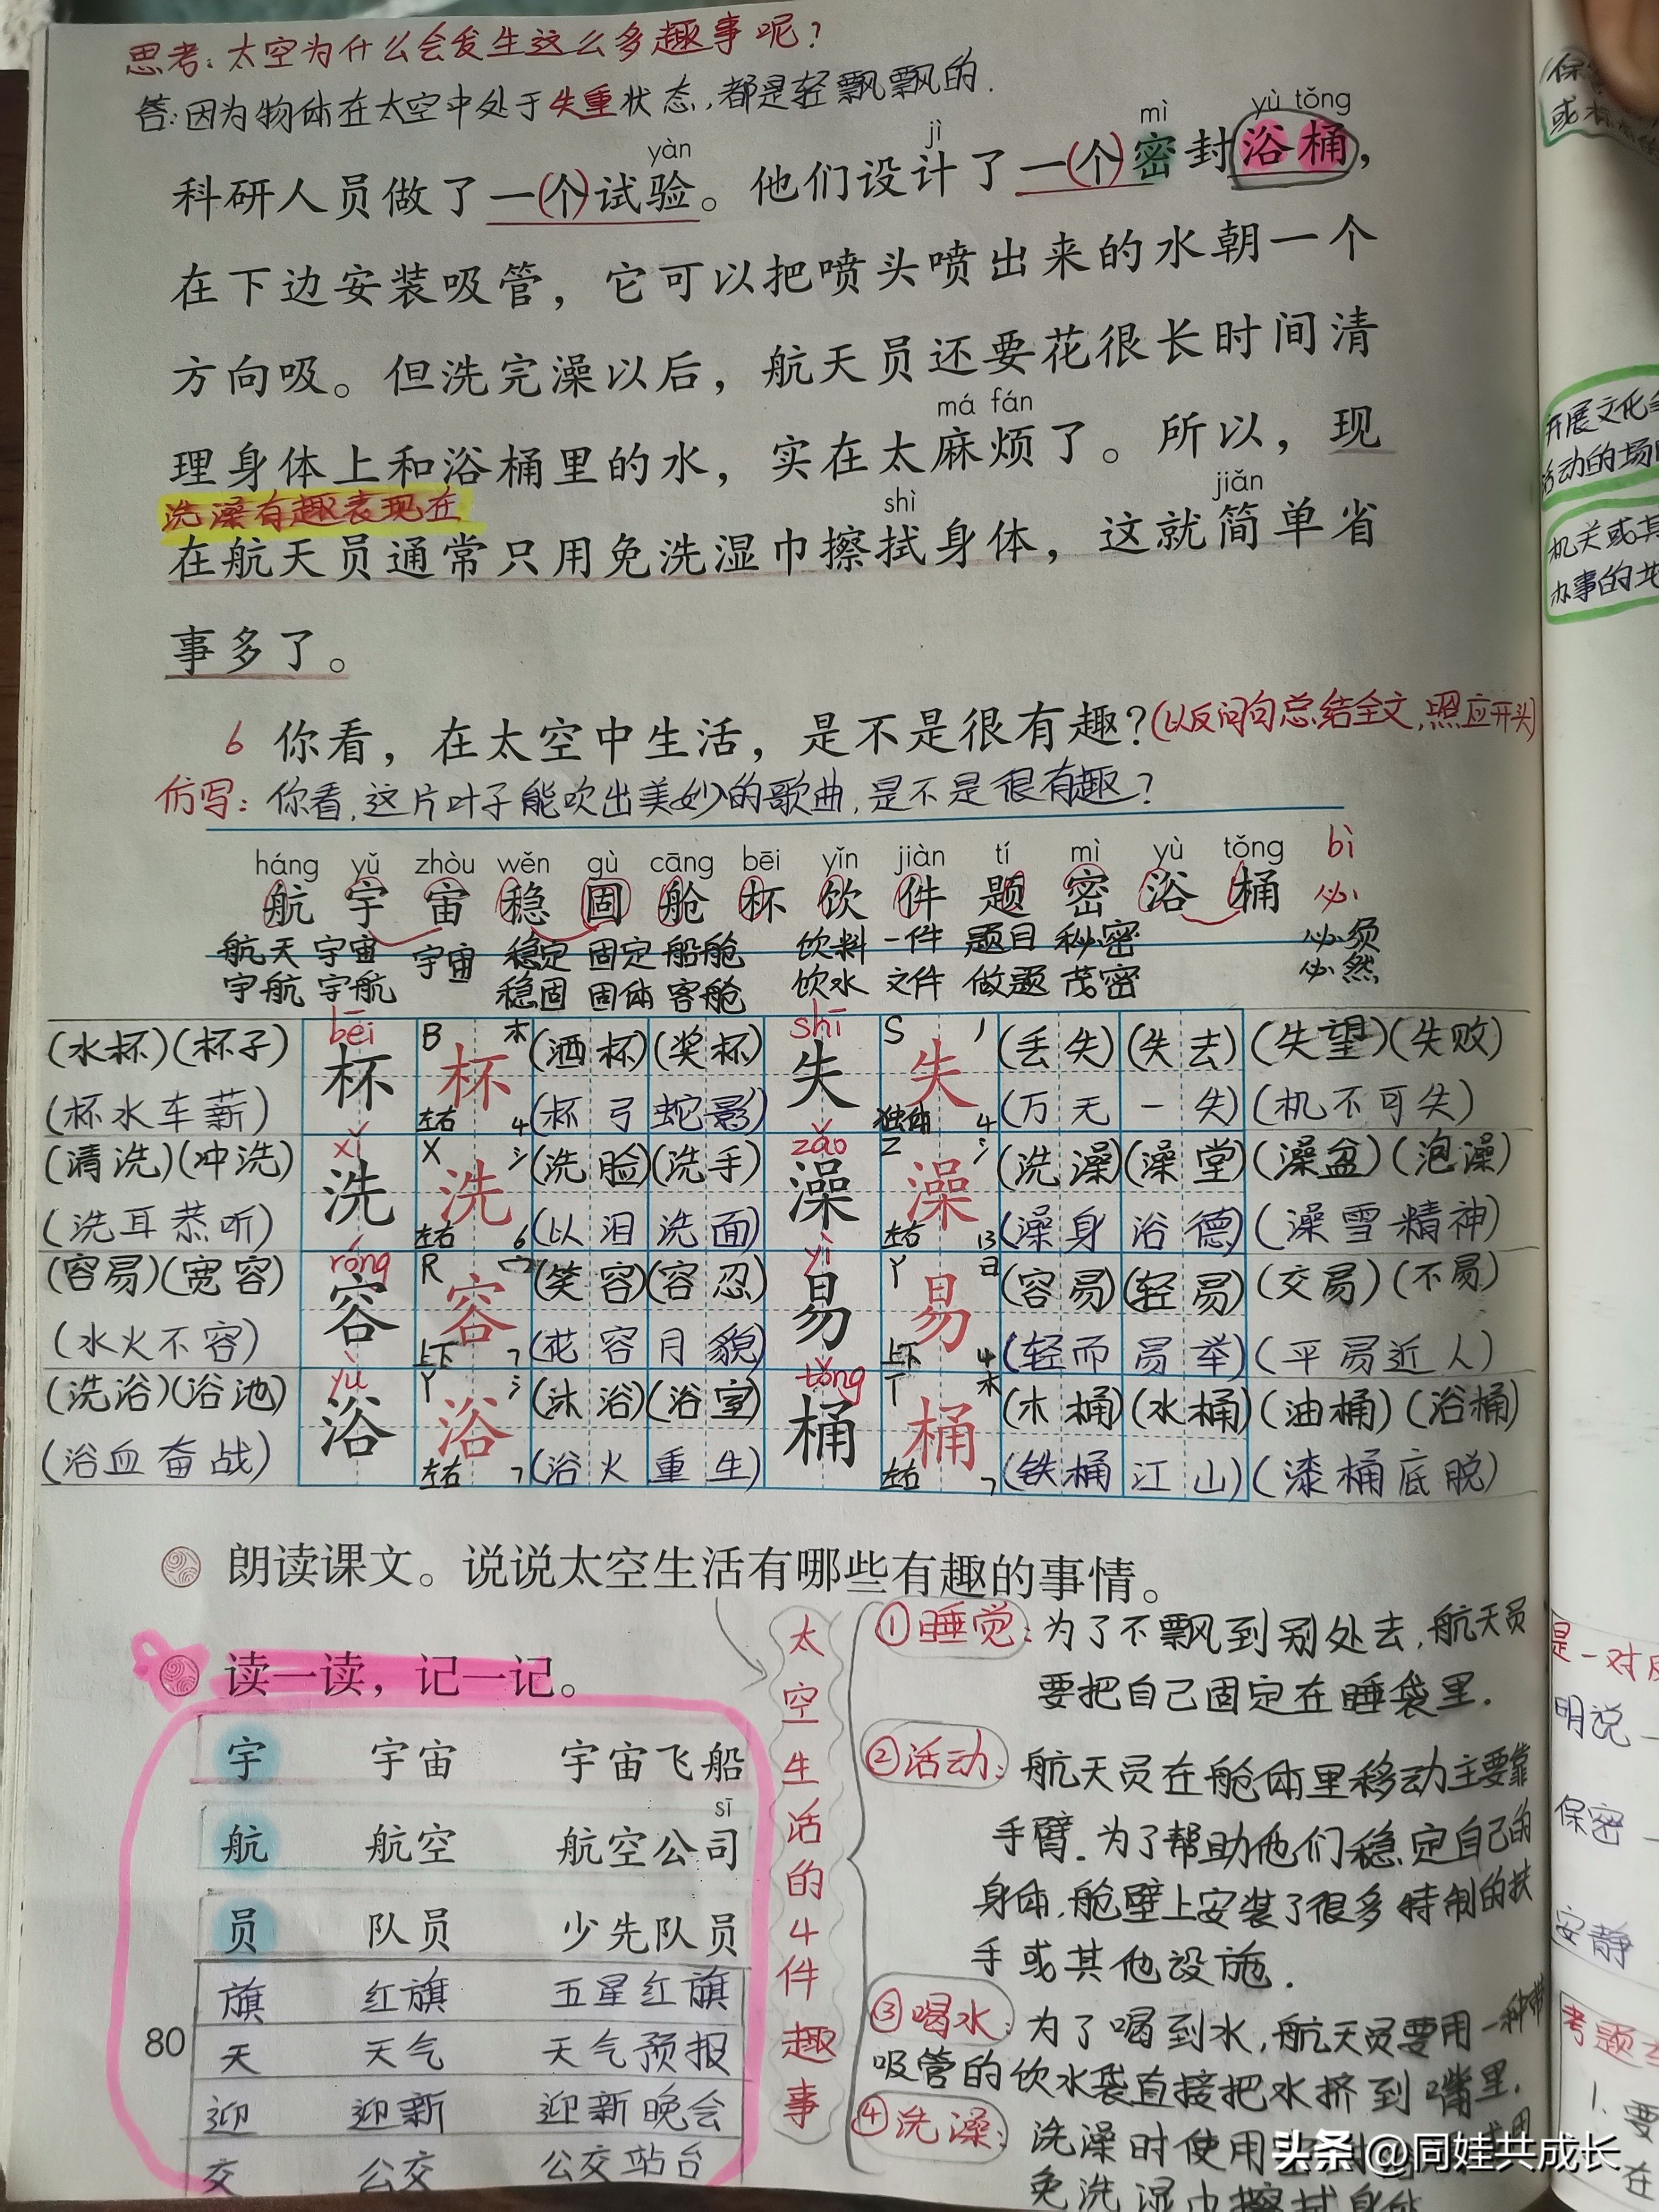 思考：太空为什么会发生这么多趣事呢？
答：因为物体在太空中处于失重状态，都是轻飘飘的.
yàn jì mì yù tǒng
科研人员做了一(个)试验。他们设计了一(个)密封浴桶，
在下边安装吸管，它可以把喷头喷出来的水朝一个
方向吸。但洗完澡以后，航天员还要花很长时间清
má fán
理身体上和浴桶里的水，实在太麻烦了。所以，现
洗澡有趣表现在
shì jiǎn
在航天员通常只用免洗湿巾擦拭身体，这就简单省
事多了。
6 你看，在太空中生活，是不是很有趣？(以反问句总结全文，照应开头)
仿写：你看，这片叶子能吹出美妙的歌曲，是不是很有趣？
háng yǔ zhòu wěn gù cāng bēi yǐn jiàn tí mì yù tǒng bì
航 宇 宙 稳 固 舱 杯 饮 件 题 密 浴 桶 必
航天 宇宙 宇宙 稳定 固定 船舱 饮料 一件 题目 秘密 必须
宇航 宇航 稳固 固体 客舱 饮水 文件 做题 茂密 必然
bēi shī
(水杯)(杯子) 杯 B 杯 木 (酒杯)(奖杯) 失 S 失 丿 (丢失)(失去)(失望)(失败)
(杯水车薪) 左右 4 (杯弓蛇影) 独体 4 (万无一失)(机不可失)
xǐ zǎo
(清洗)(冲洗) 洗 X 洗 氵 (洗脸)(洗手) 澡 Z 澡 氵 (洗澡)(澡堂)(澡盆)(泡澡)
(洗耳恭听) 左右 6 (以泪洗面) 左右 13 (澡身浴德)(澡雪精神)
róng yì
(容易)(宽容) 容 R 容 宀 (笑容)(容忍) 易 Y 易 日 (容易)(轻易)(交易)(不易)
(水火不容) 上下 7 (花容月貌) 上下 4 (轻而易举)(平易近人)
yù tǒng
(洗浴)(浴池) 浴 Y 浴 氵 (沐浴)(浴室) 桶 T 桶 木 (木桶)(水桶)(油桶)(浴桶)
(浴血奋战) 左右 7 (浴火重生) 左右 7 (铁桶江山)(漆桶底脱)
朗读课文。说说太空生活有哪些有趣的事情。
读一读，记一记。
宇 宇宙 宇宙飞船
sī
航 航空 航空公司
员 队员 少先队员
旗 红旗 五星红旗
天 天气 天气预报
迎 迎新 迎新晚会
交 公交 公交站台
80
太空生活的4件趣事
①睡觉：为了不飘到别处去，航天员
要把自己固定在睡袋里.
②活动：航天员在舱体里移动主要靠
手臂.为了帮助他们稳定自己的
身体，舱壁上安装了很多特制的扶
手或其他设施.
③喝水：为了喝到水，航天员要用一种带
吸管的饮水袋直接把水挤到嘴里.
④洗澡：洗澡时使用
免洗湿巾擦拭身体
开展文化
活动的场
机关或其
办事的
是一对反
明说
保密
安静
考题
1.要
在
头条@同娃共成长